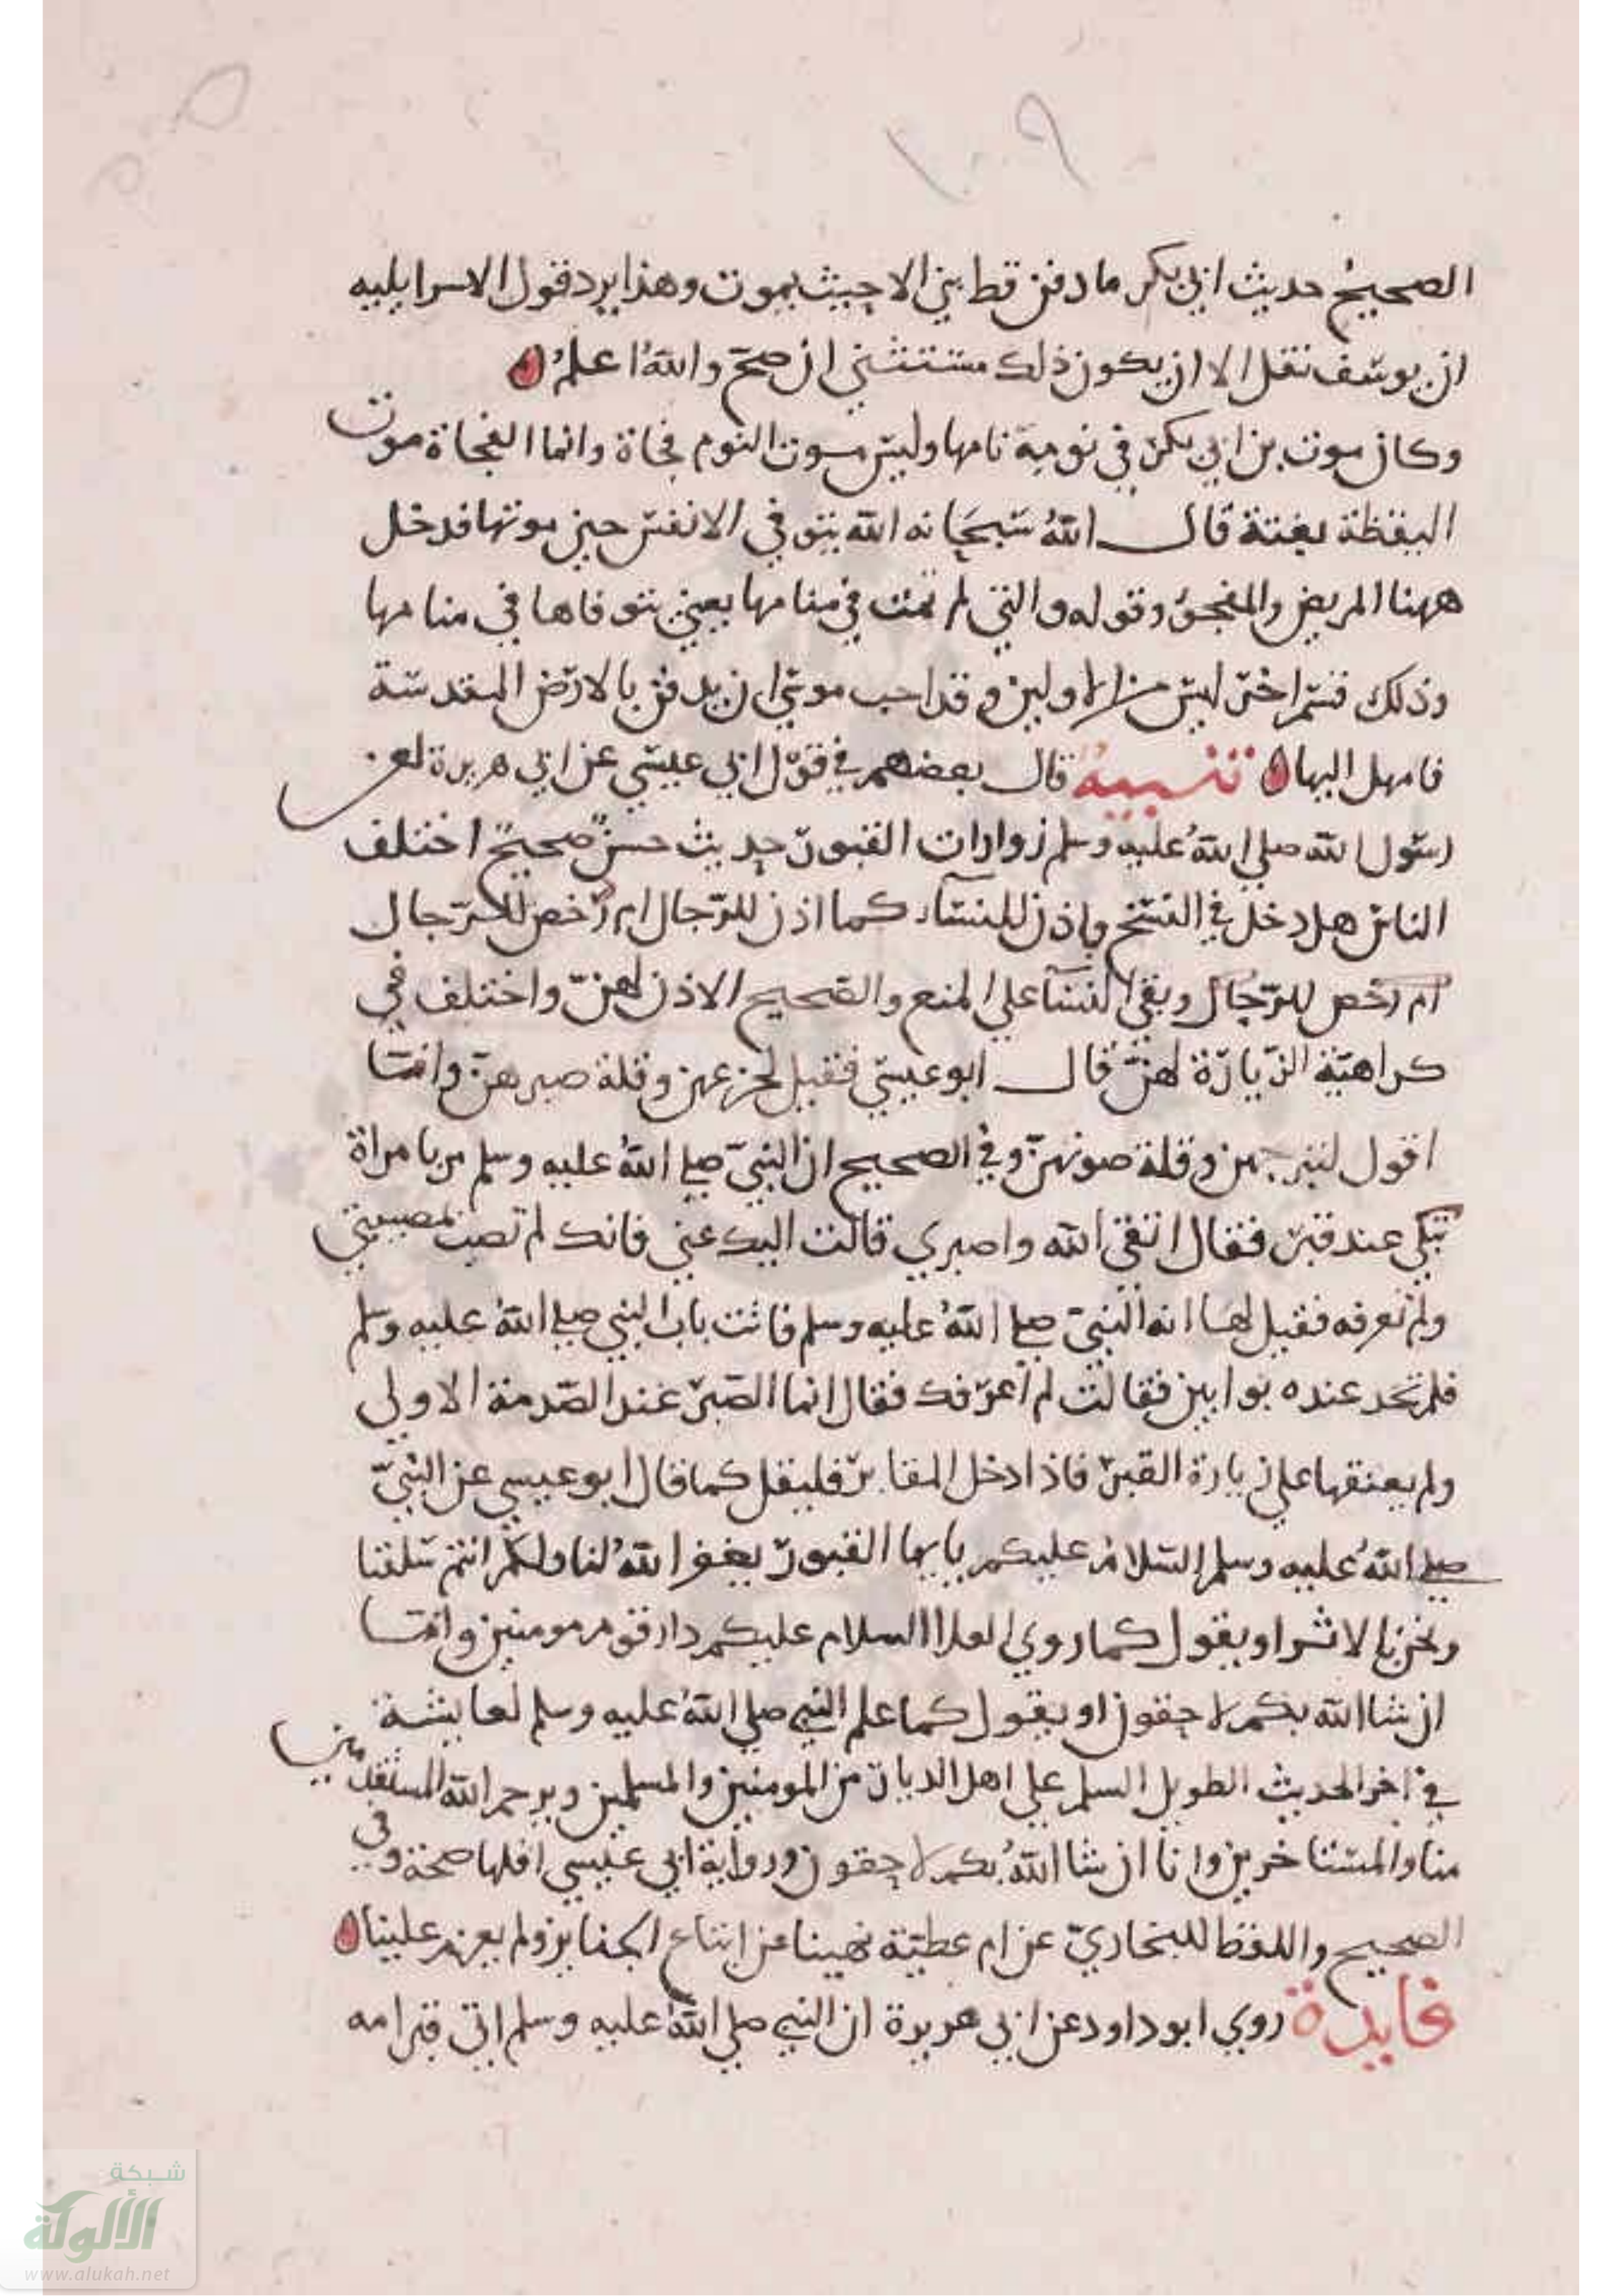 ١٠٩
الصحيح حديث ابي بكر ما دفن قط بني الا حيث يموت وهذا يرد قول الاسرايليه
ان يوسف نقل الا ان يكون ذلك مستثنى ان صح والله اعلم
وكان موت بن ابي بكر في نومة نامها وليس موت النوم فجاة وانما الفجاة موت
اليقظة بغتة قال الله سبحانه الله يتوفى الانفس حين موتها فدخل
ههنا المريض والمفجو وقوله والتي لم تمت في منامها يعني يتوفاها في منامها
وذلك قسم اخر ليس من الاولين وقد احب موسى ان يدفن بالارض المقدسة
فامهل اليها تنبيه قال بعضهم في قول ابي عيسى عن ابي هريرة لعن
رسول الله صلى الله عليه وسلم زوارات القبور حديث حسن صحيح اختلف
الناس هل دخل في النسخ واذن للنساء كما اذن للرجال ام رخص للرجال
ام رخص للرجال وبقى النسا على المنع والصحيح الاذن لهن واختلف في
كراهية الزيارة لهن قال ابو عيسى فقيل لجزعهن وقلة صبرهن وانما
اقول لتبرجهن وقلة صونهن وفي الصحيح ان النبي صلى الله عليه وسلم مر بامراة
تبكي عند قبر فقال اتقي الله واصبري قالت اليك عني فانك لم تصب بمصيبتي
ولم تعرفه فقيل لها انه النبي صلى الله عليه وسلم فاتت باب النبي صلى الله عليه وسلم
فلم تجد عنده بوابين فقالت لم اعرفك فقال انما الصبر عند الصدمة الاولى
ولم يعنفها على زيارة القبر فاذا دخل المقابر فليقل كما قال ابو عيسى عن النبي
صلى الله عليه وسلم السلام عليكم يا ايها القبور يغفر الله لنا ولكم انتم سلفنا
ونحن بالاثر او يقول كما روي العلا السلام عليكم دار قوم مومنين وانا
ان شا الله بكم لاحقون او يقول كما علم النبي صلى الله عليه وسلم لعايشة
في اخر الحديث الطويل السلم على اهل الديار من المومنين والمسلمين ويرحم الله المستقدمين
منا والمستاخرين وانا ان شا الله بكم لاحقون ورواية ابي عيسى اقلها صحة وفي
الصحيح واللفظ للبخاري عن ام عطية نهينا عن اتباع الجنايز ولم يعزم علينا
فايدة روي ابو داود عن ابي هريرة ان النبي صلى الله عليه وسلم اتى قبر امه
شبكة
الألوكة
www.alukah.net